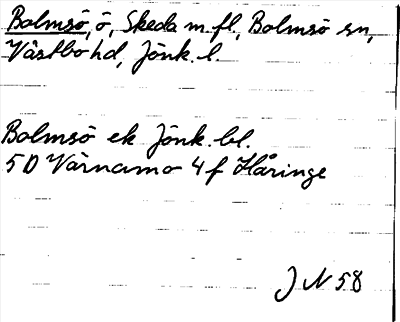 Bolmsö, ö, Skeda m.fl., Bolmsö sn,
Västbo hd, Jönk. l.
Bolmsö ek Jönk. bl.
5D Värnamo 4f Håringe
J N 58